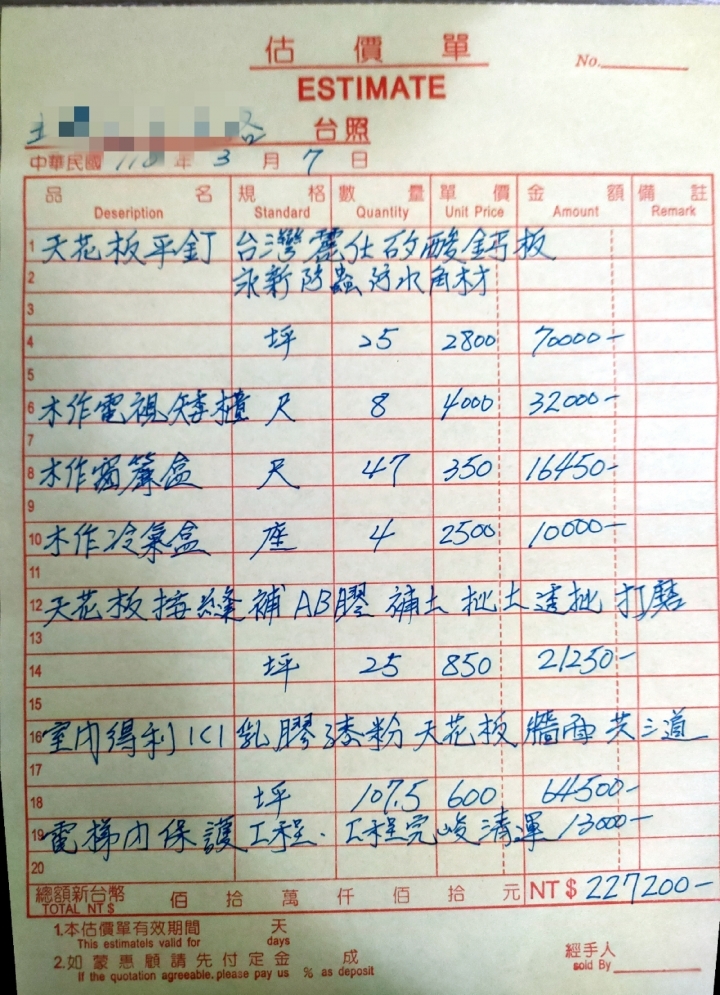 估價單
No.
ESTIMATE
台照
中華民國 年 3 月 7 日
品名 規格 數量 單價 金額 備註
Deseription Standard Quantity Unit Price Amount Remark
1 天花板平釘 台灣麗仕矽酸鈣板
2 永新防蟲防水角材
3
4 坪 25 2800 70000-
5
6 木作電視矮櫃 尺 8 4000 32000-
7
8 木作窗簾盒 尺 47 350 16450-
9
10 木作冷氣盒 座 4 2500 10000-
11
12 天花板接縫補AB膠 補土 批土透批 打磨
13
14 坪 25 850 21250-
15
16 室內得利ICI乳膠漆粉天花板 牆面共三道
17
18 坪 107.5 600 64500-
19 電梯內保護工程. 工程完峻清運 13000-
20
總額新台幣 佰 拾 萬 仟 佰 拾 元 NT$ 227200-
TOTAL NT$
1.本估價單有效期間 天
This estimatels valid for days
2.如蒙惠顧請先付定金 成
If the quotation agreeable.please pay us % as deposit
經手人
sold By